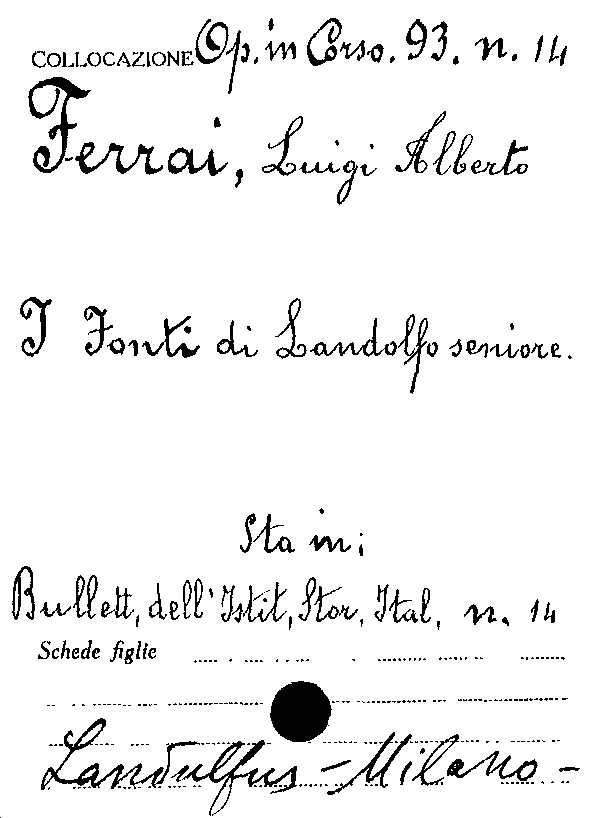 COLLOCAZIONE Op. in Corso. 93. n. 14
Ferrai, Luigi Alberto
I Fonti di Landolfo seniore.
Sta in;
Bullett, dell'Istit, Stor, Ital, n. 14
Schede figlie
Landulfus - Milano -